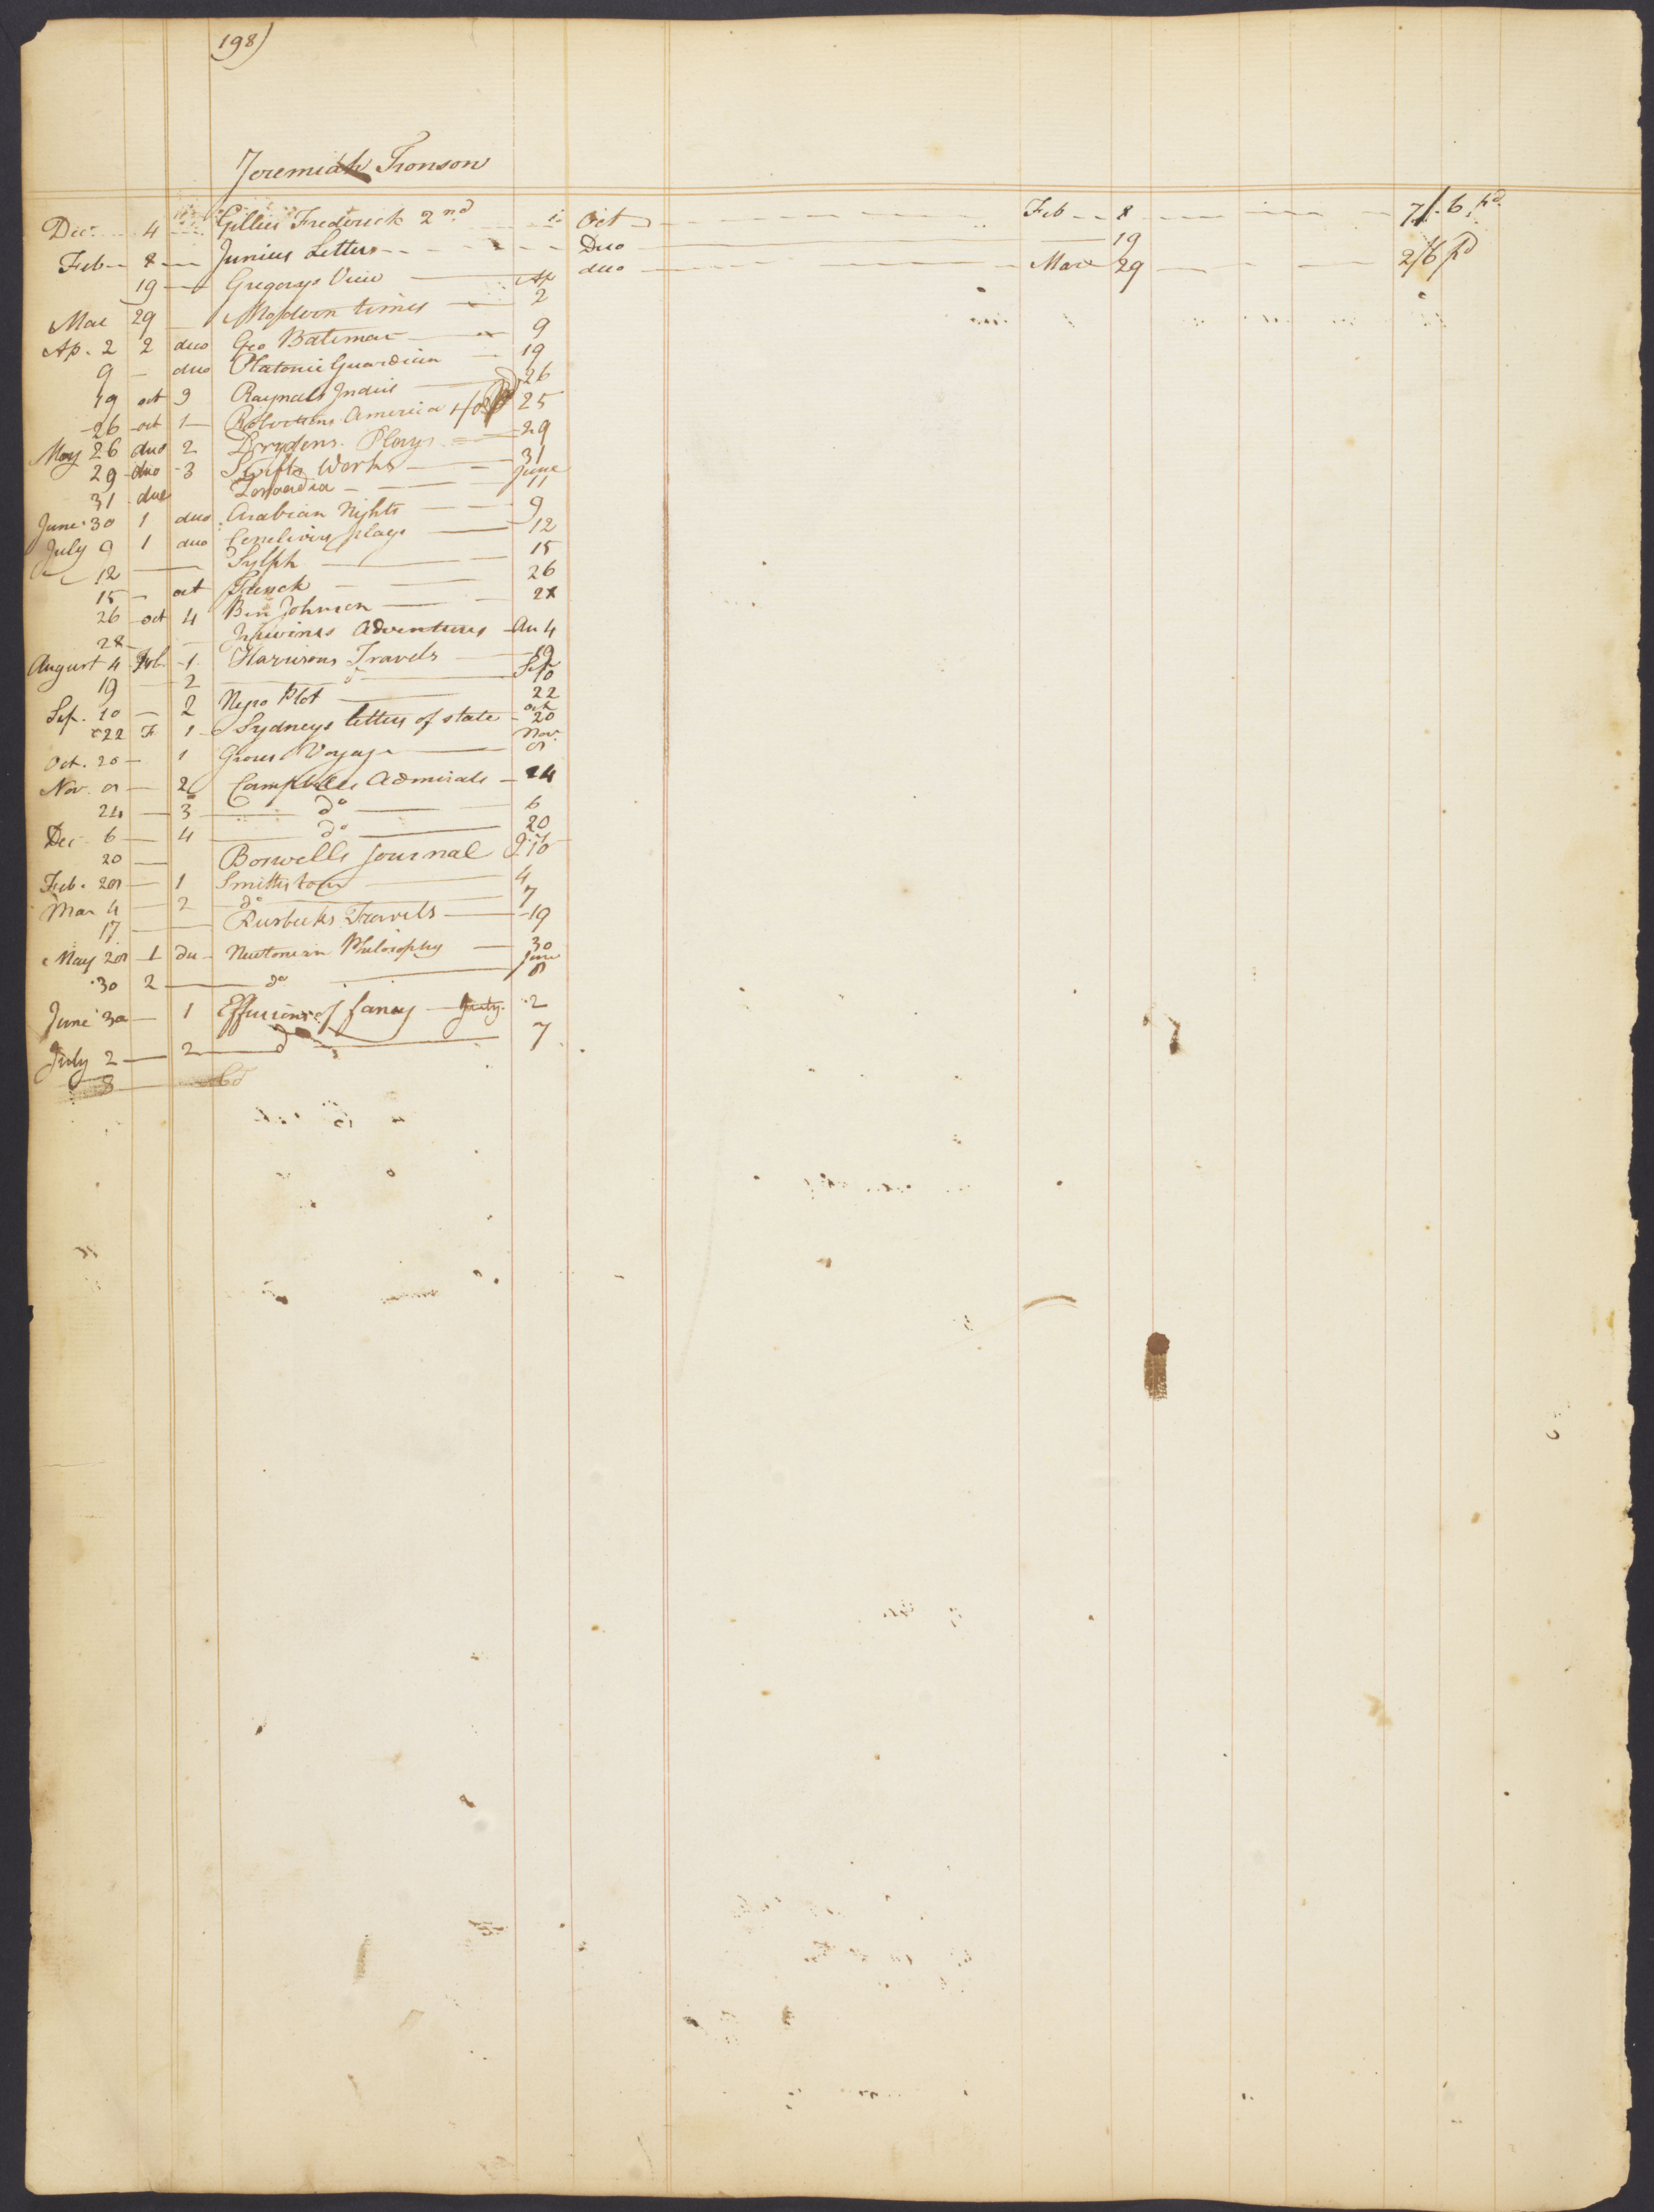 198)
Jeremiah Tronson
Decr 4 Gillies Frederick 2nd 1 Oct Feb 8 7/.6 pd
Feb 8 Junius Letters Duo 19
19 Gregorys View duo Mar 29 2/6 pd
Mar 29 Modern times Ap 2
Ap. 2 2 duo Geo Bateman 9
9 duo Platonic Guardian 19
19 oct 3 Raynals Indies 26
26 oct 1 America 25
May 26 duo 2 Drydens Plays 29
29 duo 3 Swifts Works 31
31 duo June 11
June 30 1 duo Arabian Nights 9
July 9 1 duo plays 12
12 Sylph 15
15 oct Trenck 26
26 oct 4 Ben Johnson 28
28 Adventures Au 4
August 4 Fol. 1 Harrisons Travels 19
19 2 do Sep 10
Sep. 10 2 Negro Plot 22
22 F 1 Sydneys letters of state oct 20
Oct. 20 1 Groses Voyage Nov.
Nov. 2 Campbells Admirals 24
24 3 do 6
Dec 6 4 do 20
20 Boswells Journal
Feb. 1 Smiths tour 4
Mar 4 2 do 7
17 Travels 19
May 1 du Newtonian Philosophy 30
30 2 do June
June 30 1 Effusions of fancy July. 2
July 2 2 do 7
8